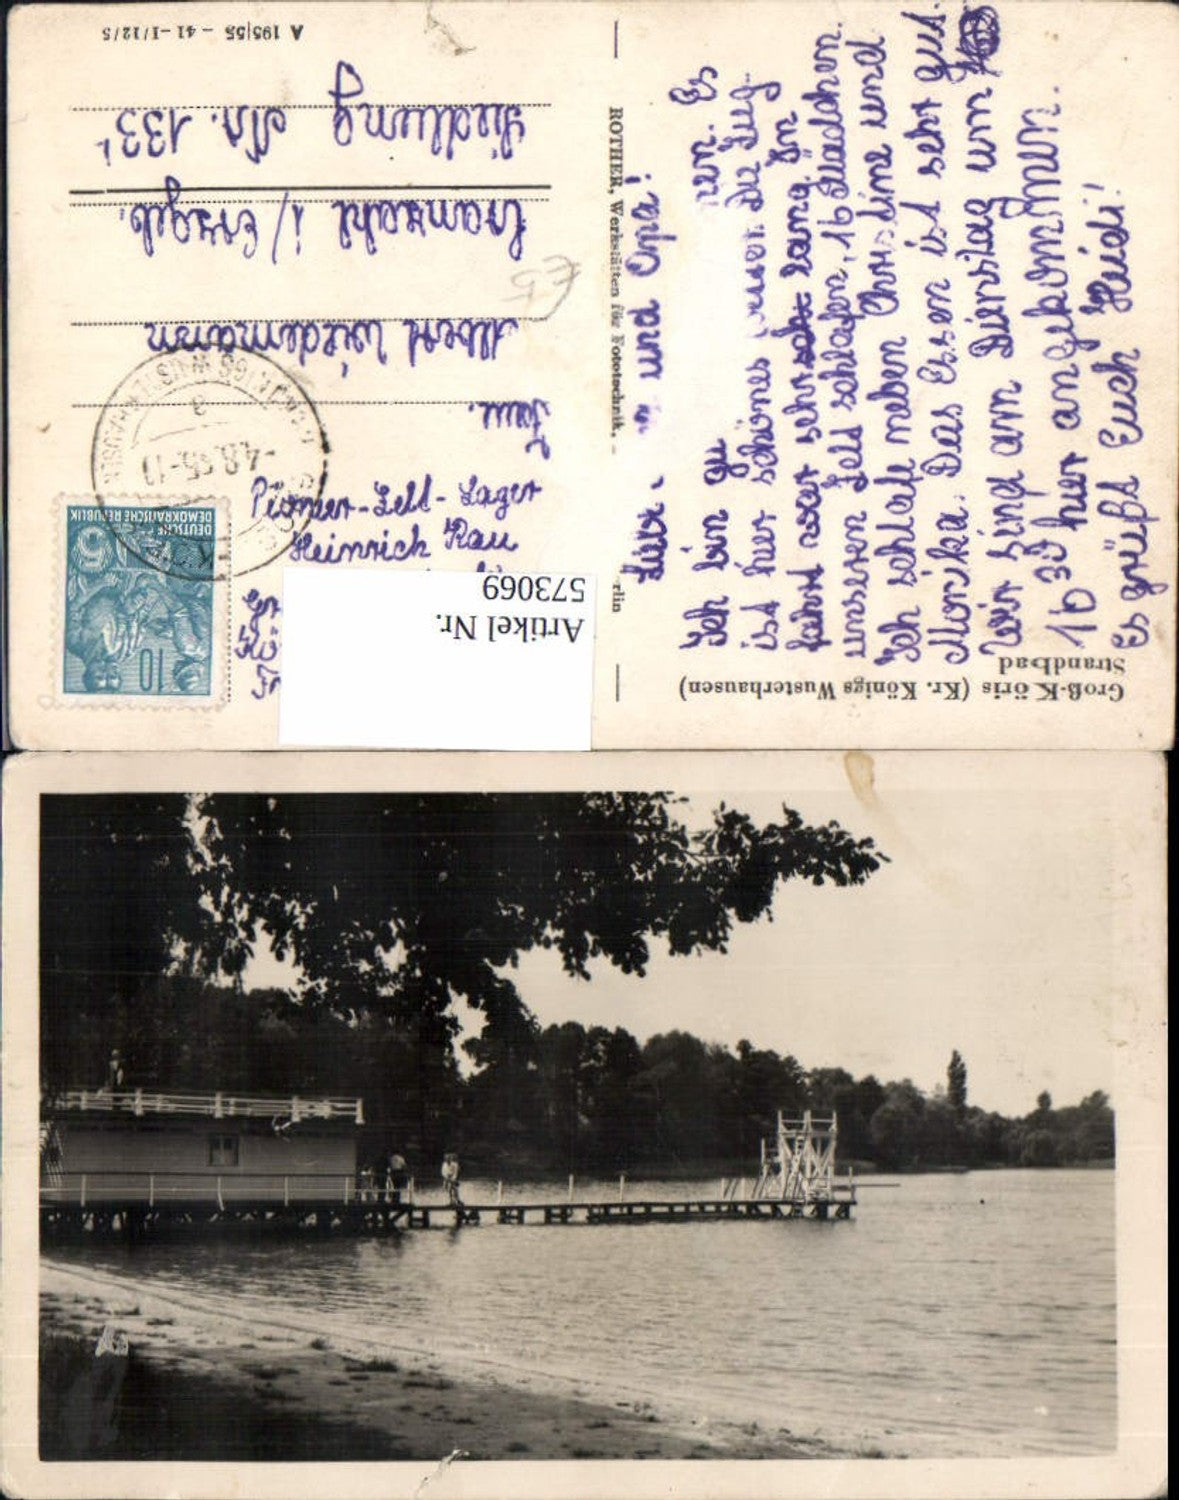 Groß-Köris (Kr. Königs Wusterhausen)
Strandbad
und Opa!
Ich bin gu nen. Es
ist hier schönes Du Zug-
fahrt war sehr lang. In
unseren Zelt schlafen, 16 Mädchen.
Ich schlafe neben Christine und
Monika. Das Essen ist sehr gut.
Wir sind am Dienstag um
16 30 hier angekommen.
Es grüßt Euch Heidi!
ROTHER, Werkstätten für Fototechnik,
rlin
DEUTSCHE
DEMOKRATISCHE REPUBLIK
10
5
KÖNIGS WUSTERHAUSEN
-4.8.55-
Pionier-Zelt-Lager
Heinrich Rau
Fam.
Albert Wiedemann
Cranzahl i/Erzgeb.
Siedlung Nr. 133
A 195|55 - 41-I/12/5
Artikel Nr.
573069